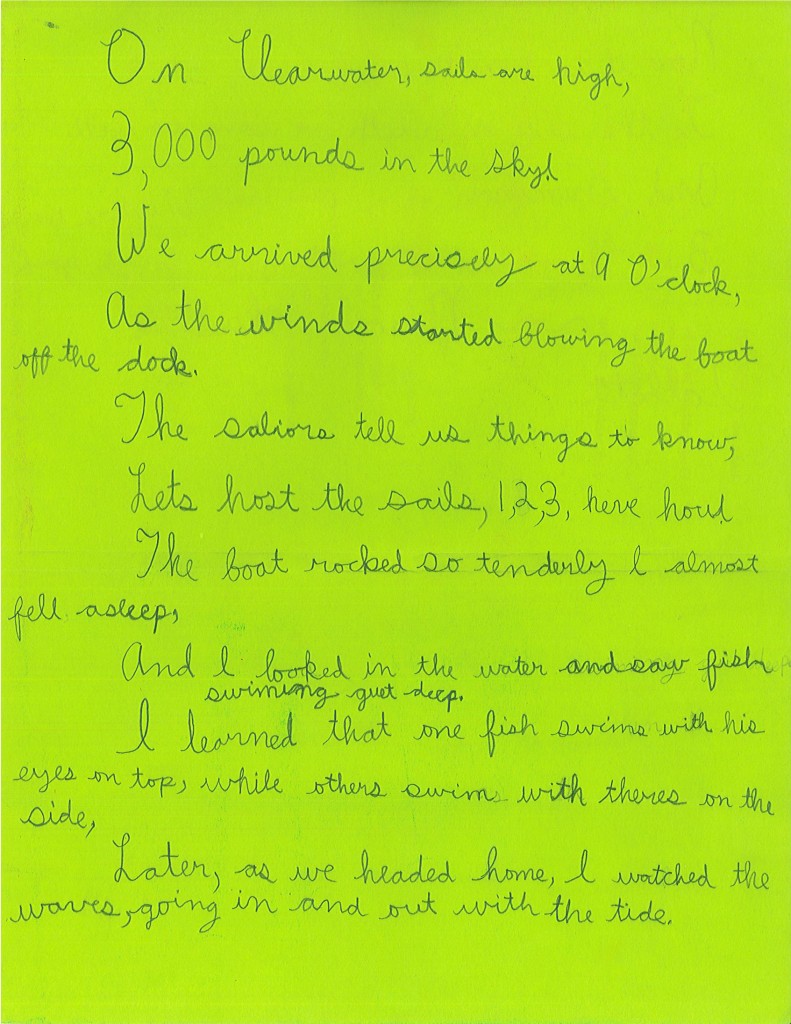 On Clearwater, sails are high,
3,000 pounds in the sky!
We arrived precisely at 9 O'clock,
As the winds started blowing the boat
off the dock.
The saliors tell us things to know,
Lets host the sails, 1,2,3, here how!
The boat rocked so tenderly I almost
fell asleep,
And I looked in the water and saw fish
swiming quet deep.
I learned that one fish swims with his
eyes on top, while others swim with theres on the
side,
Later, as we headed home, I watched the
waves, going in and out with the tide.